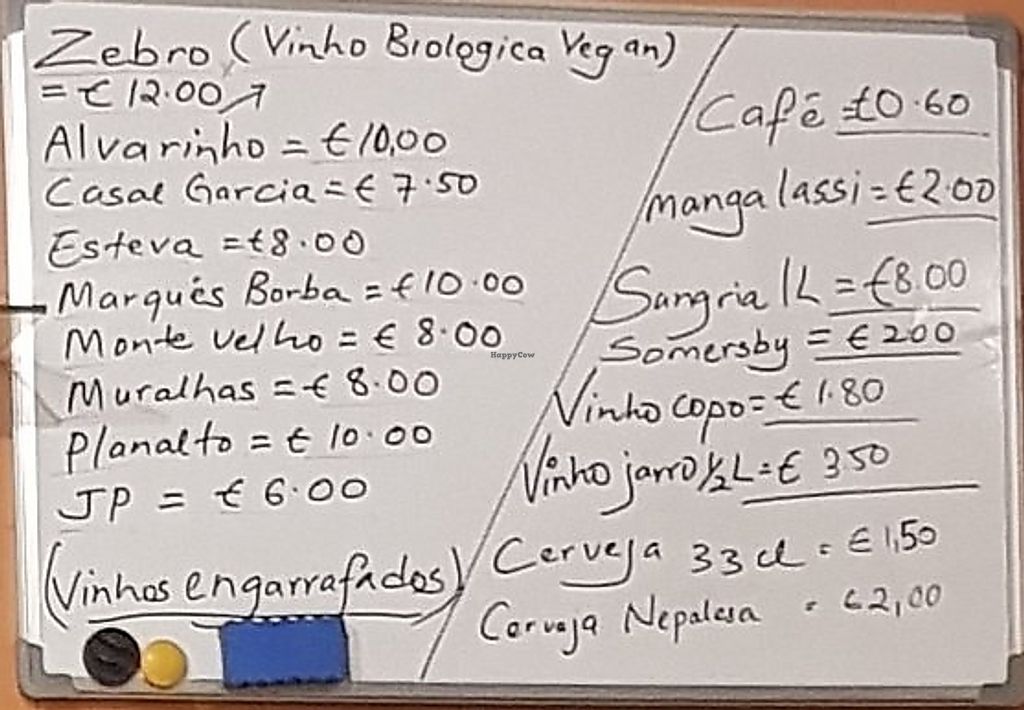 Zebro (Vinho Biologica Vegan)
= € 12.00
Alvarinho = €10,00
Casal Garcia = € 7.50
Esteva = €8.00
Marquês Borba = €10.00
Monte velho = € 8.00
Muralhas = € 8.00
Planalto = € 10.00
JP = € 6.00
(Vinhos engarrafados)
Café = €0.60
manga lassi = €2.00
Sangria 1L = €8.00
Somersby = € 200
Vinho copo = € 1.80
Vinho jarro 1/2 L = € 350
Cerveja 33 cl = € 1,50
Cerveja Nepalesa = €2,00
HappyCow